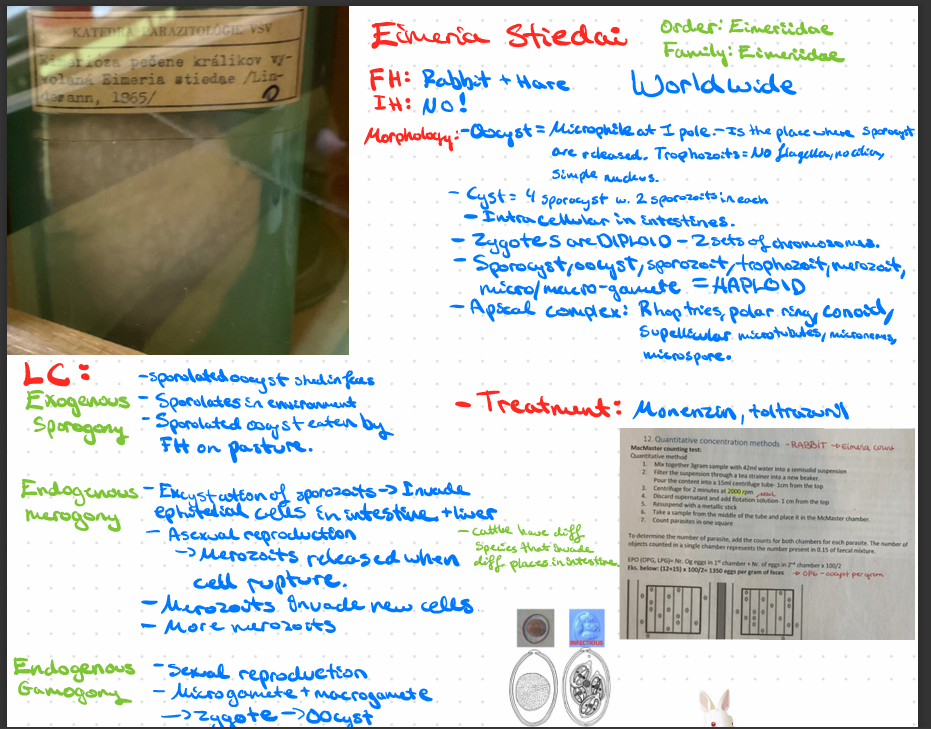 KATEDRA PARAZITOLÓGIE VŠV
Eimerioza pečene králikov vy-
volaná Eimeria stiedae /Lin-
demann, 1865/
Eimeria Stiedai
Order: Eimeriidae
Family: Eimeriidae
FH: Rabbit + Hare
Worldwide
IH: NO!
Morphology: - Oocyst = Microphile at 1 pole. - Is the place where sporocyst
are released. Trophozoits = No flagella, no cilia,
simple nucleus.
- Cyst = 4 sporocyst w. 2 sporozoits in each
- Intracellular in intestines.
- Zygotes are DIPLOID - 2 sets of chromosomes.
- Sporocyst, oocyst, sporozoit, trophozoit, merozoit,
micro/macro-gamete = HAPLOID
- Apical complex: Rhoptries, polar ring, conoid,
supellicular microtubules, micronemes,
microspore.
LC:
Exogenous
Sporogony
- sporolated oocyst shed in feces
- Sporolates in environment
- Sporolated oocyst eaten by
FH on pasture.
- Treatment: Monenzin, toltrazuril
Endogenous
merogony
- Excystation of sporozoits -> Invade
ephitelial cells in intestine + liver
- Asexual reproduction
-> Merozoits released when
cell rupture.
- Merozoits invade new cells
- More merozoits
- cattle have diff
species that invade
diff places in intestine.
Endogenous
Gamogony
- Sexual reproduction
- Microgamete + macrogamete
-> Zygote -> Oocyst
12. Quantitative concentration methods - RABBIT -> Eimeria count
MacMaster counting test:
Quantitative method
1. Mix together 3gram sample with 42ml water into a semisolid suspension
2. Filter the suspension through a tea strainer into a new beaker.
Pour the content into a 15ml centrifuge tube- 1cm from the top
3. Centrifuge for 2 minutes at 2000 rpm
4. Discard supernatant and add flotation solution- 1 cm from the top
5. Resuspend with a metallic stick
6. Take a sample from the middle of the tube and place it in the McMaster chamber.
7. Count parasites in one square
To determine the number of parasite, add the counts for both chambers for each parasite. The number of
objects counted in a single chamber represents the number present in 0.15 of faecal mixture.
EPG (OPG, LPG)= Nr. Og eggs in 1st chamber + Nr. of eggs in 2nd chamber x 100/2
Eks. below: (12+15) x 100/2= 1350 eggs per gram of feces -> OPG - oocyst per gram
INFECTIOUS